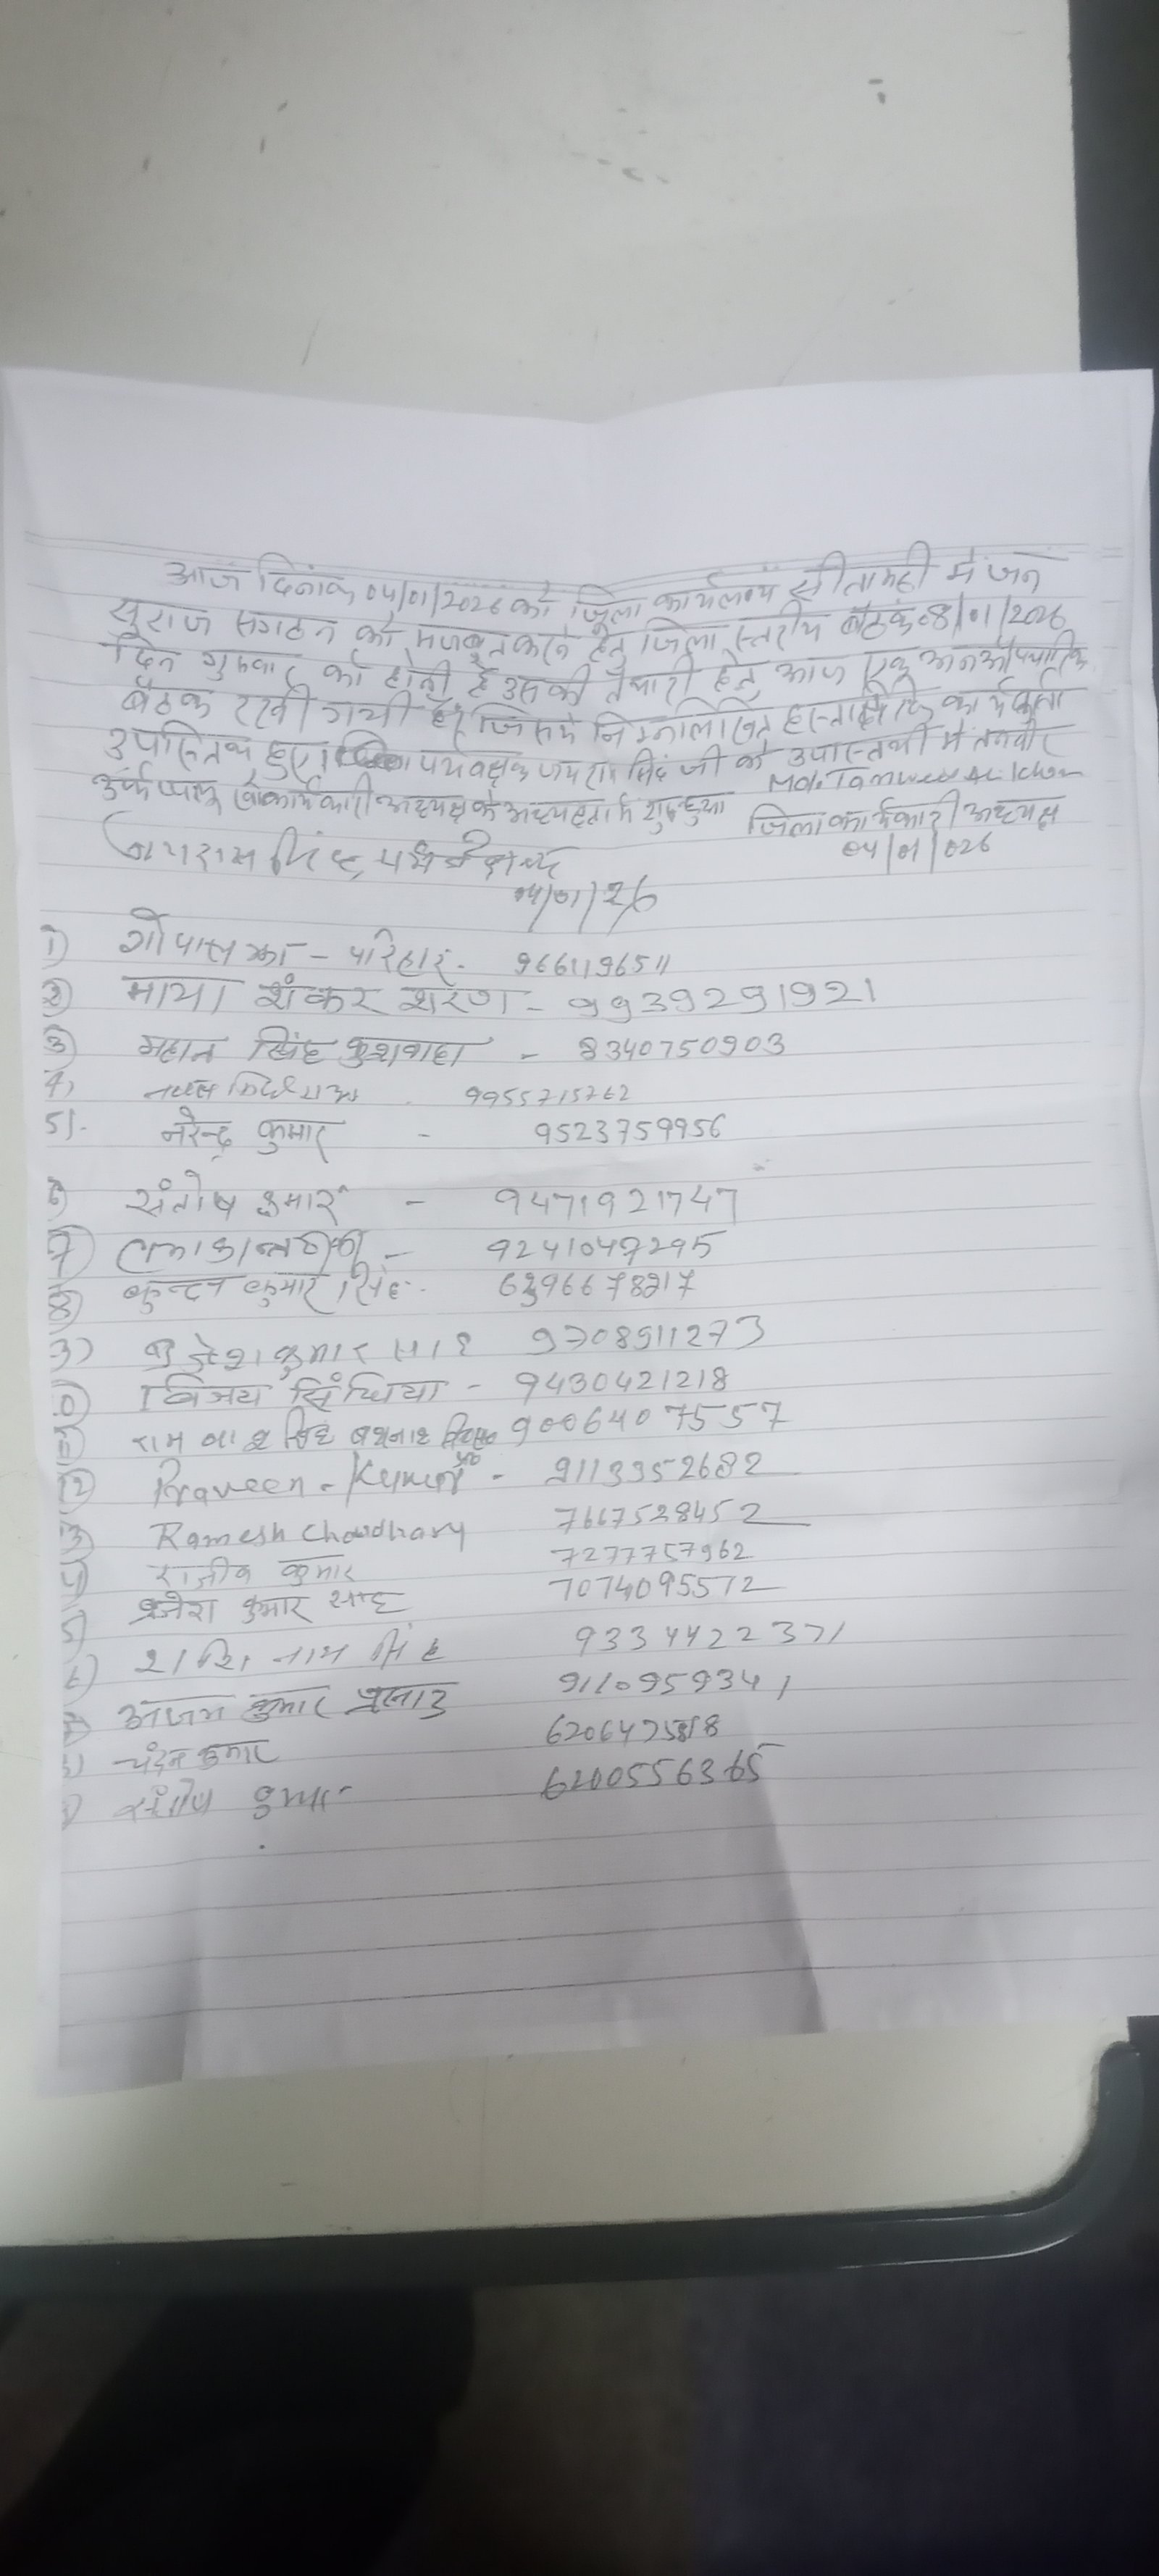 आज दिनांक 04/01/2026 को जिला कार्यलय सीतामढी मे जन
सुराज संगठन को मजबुत करने हेतु जिला स्तरीय बैठक 08/01/2026
दिन गुरुवार को होनी है उसकी तैयारी हेतु आज एक अनऔपचारिक
बैठक रखी गयी है जिसमे निम्नलिखित कार्यकर्ता
उपस्तिथ हुए जयराम सिंह जी के उपास्तथी मे तनवीर
कार्यकारी अध्यक्ष के अध्यक्षता मे शुरू हुआ
Md. Tanweer Ali Khan
जिला कार्यकारी अध्यक्ष
04/01/026
जयराम सिंह,
04/01/26
1) गोपाल झा - परिहार. 9661196511
2) माया शंकर शरण - 9939291921
3) महान सिंह कुशवाहा - 8340750903
4) 9955715762
5). नरेन्द्र कुमार - 9523759956
6) संतोष कुमार - 9471921747
7) - 9241047295
8) कुन्दन कुमार सिंह.
9) कुमार साह 9708511273
10) विजय सिंघिया - 9430421218
राम सिंह बथनाह 9006407557
12) Praveen - Kumar - 9113352682
13) Ramesh Choudhary 7667528452
14) राजीव कुमार 7277757962
15) ब्रजेश कुमार साह 7074095572
सिंह 9334422371
अजय कुमार प्रसाद 9110959341
चंदन कुमार
संतोष कुमार 6200556365